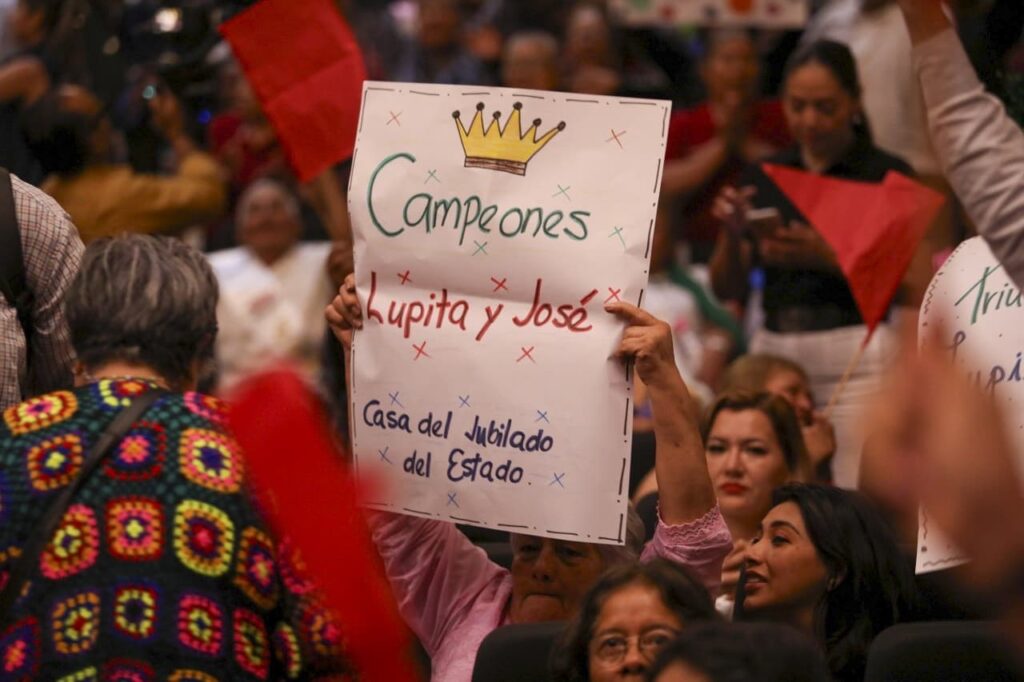 Campeones
Lupita y José
Casa del Jubilado
del Estado.